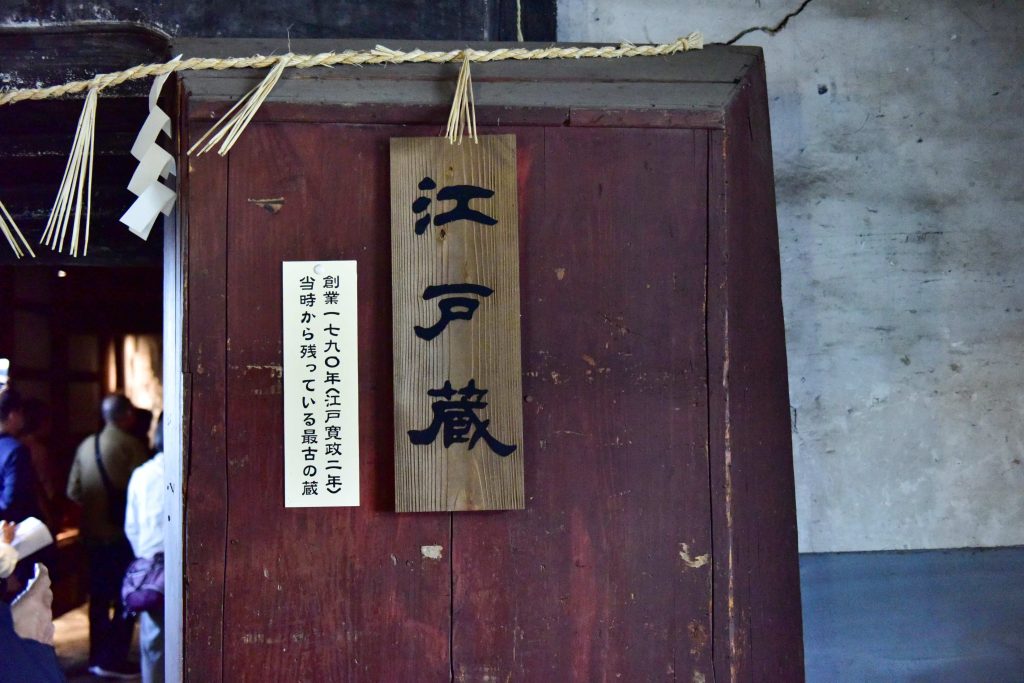 江戸蔵
創業一七九〇年〈江戸寛政二年〉
当時から残っている最古の蔵